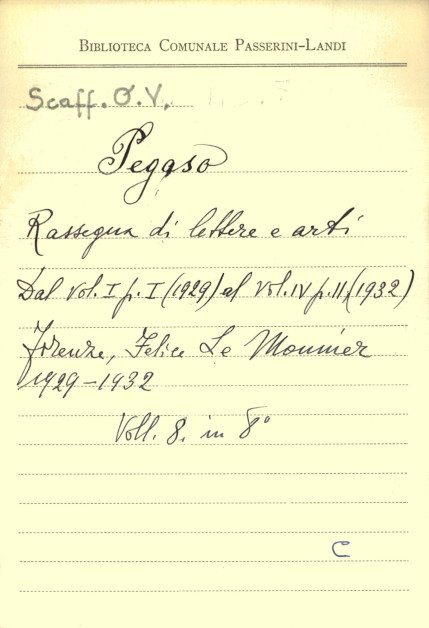 BIBLIOTECA COMUNALE PASSERINI-LANDI
Scaff. O. V.
Pegaso
Rassegna di lettere e arti
Dal vol. I p. I (1929) al vol. IV p. II, (1932)
Firenze, Felice Le Monnier
1929-1932
Voll. 8. in 8°
C